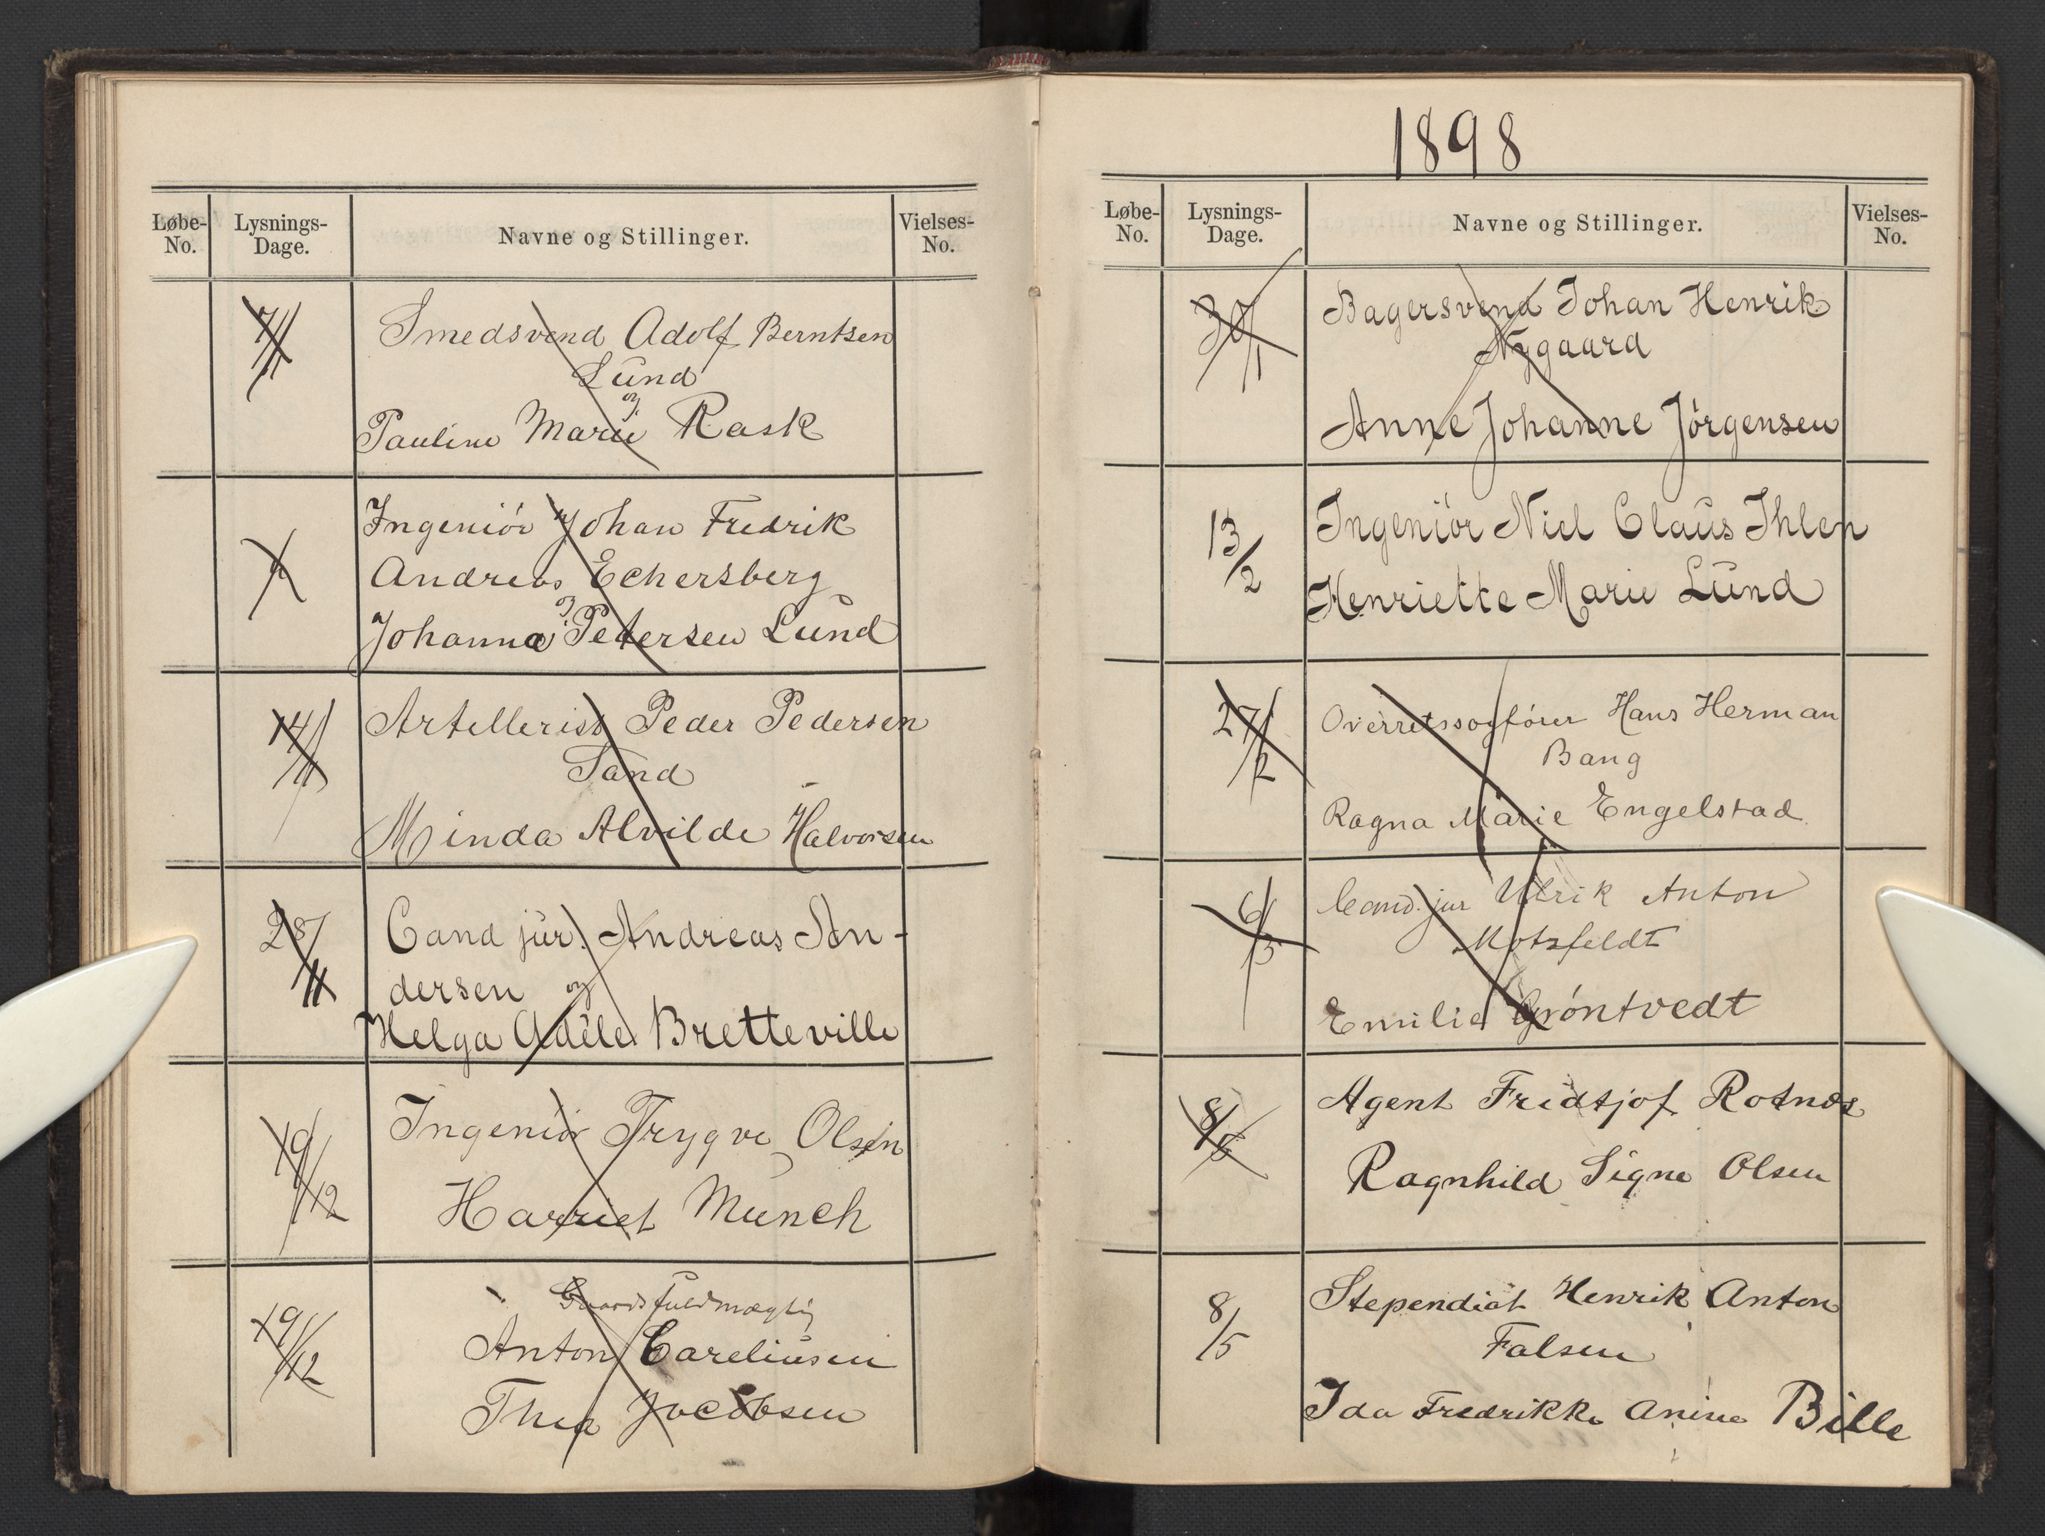 Løbe-
No.
Lysnings-
Dage.
Navne og Stillinger.
Vielses-
No.
7/11
Smedsvend Adolf Berntsen
Lund
og
Pauline Marie Rask
Ingeniör Johan Fredrik
Andreas Eckersberg
og
Johanna Petersen Lund
14/11
Artellerist Peder Pedersen
Sand
Minda Alvilde Halvorsen
28/11
Cand jur. Andreas An-
dersen og
Helga Adéle Bretteville
19/12
Ingeniör Trygve Olsen
Harriet Munch
19/12
Gaardsfuldmægtig
Anton Careliusen
Thea Jacobsen
1898
Løbe-
No.
Lysnings-
Dage.
Navne og Stillinger.
Vielses-
No.
30/1
Bagersvend Johan Henrik
Nygaard
Anne Johanne Jörgensen
13/2
Ingeniör Niel Claus Ihlen
Henriette Marie Lund
27/2
Overretssagförer Hans Herman
Bang
Ragna Marie Engelstad
6/3
Cand. jur Ulrik Anton
Motzfeldt
Emilie Gröntvedt
8/5
Agent Fridtjof Rotnæs
Ragnhild Signe Olsen
8/5
Stependiat Henrik Anton
Falsen
Ida Fredrikke Anine Bille